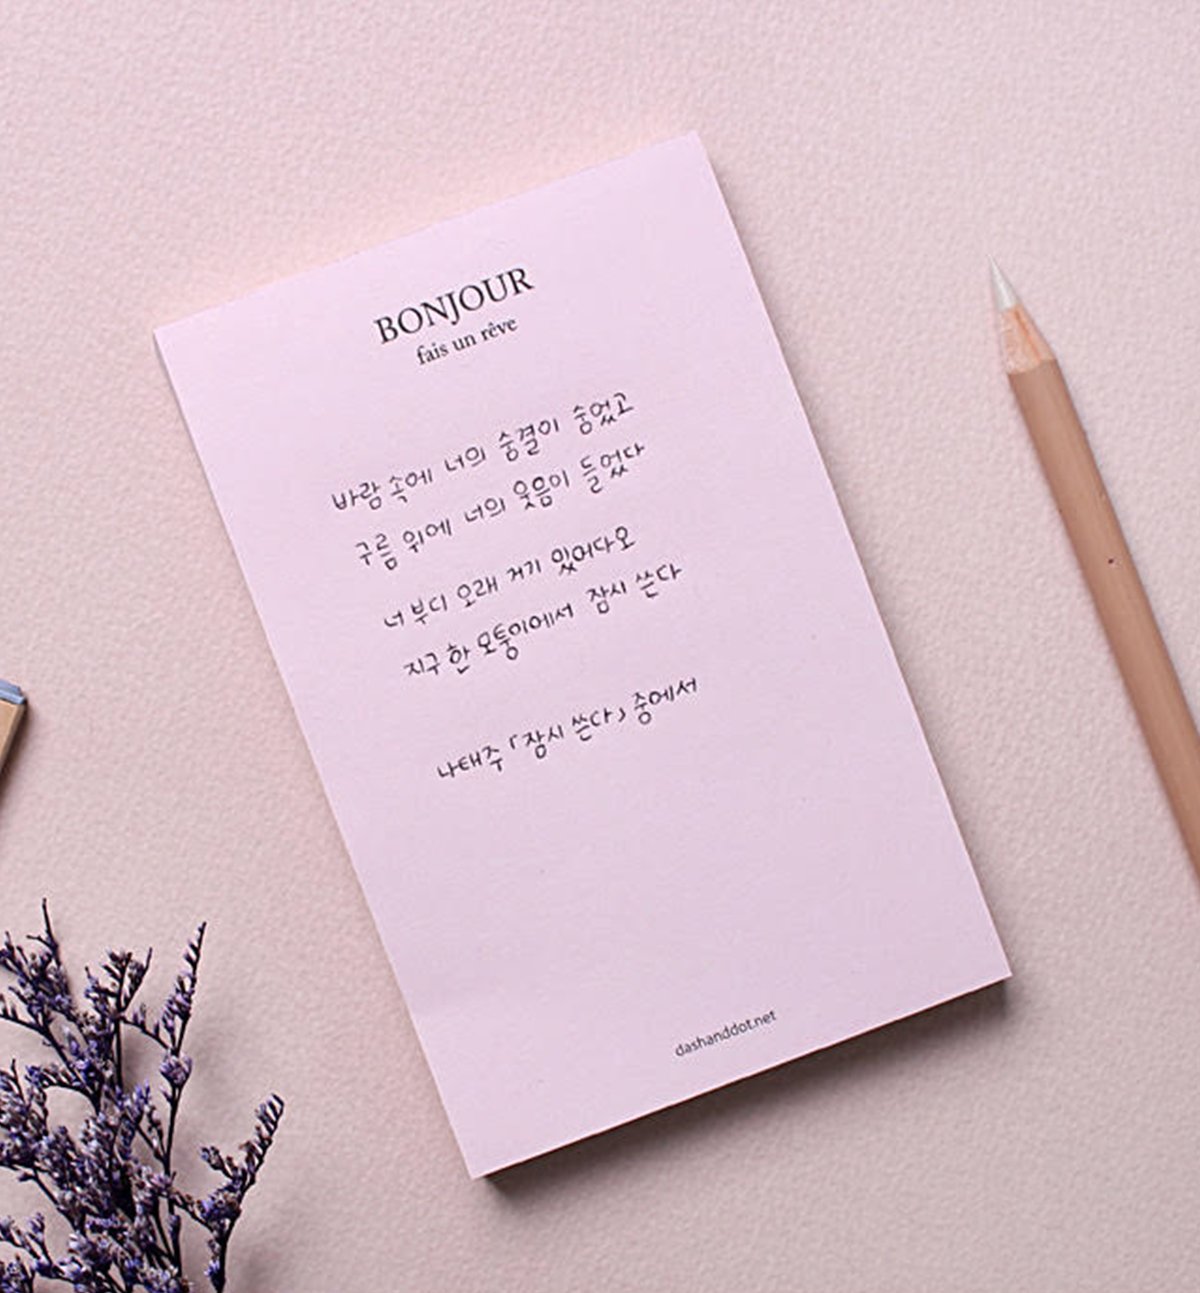 BONJOUR
fais un rêve
바람 속에 너의 숨결이 숨었고
구름 위에 너의 웃음이 들었다
너 부디 오래 거기 있어다오
지구 한 모퉁이에서 잠시 쓴다
나태주 「잠시 쓴다」 중에서
dashanddot.net